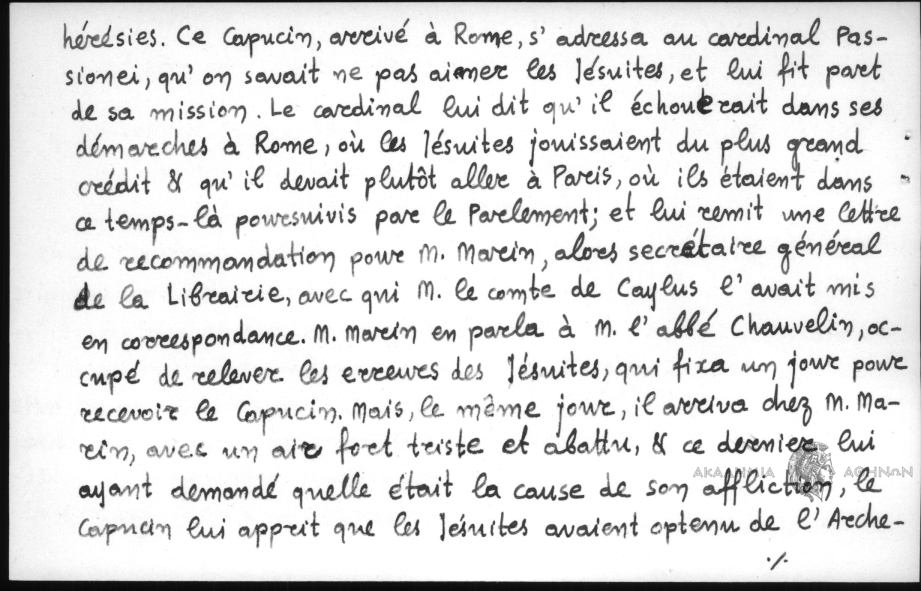 hérésies. Ce Capucin, arrivé à Rome, s' adressa au cardinal Pas-
sionei, qu' on savait ne pas aimer les Jésuites, et lui fit part
de sa mission. Le cardinal lui dit qu' il échouerait dans ses
démarches à Rome, où les Jésuites jouissaient du plus grand
crédit & qu' il devait plutôt aller à Paris, où ils étaient dans
ce temps-là poursuivis par le Parlement; et lui remit une lettre
de recommandation pour M. Marin, alors secrétaire général
de la Librairie, avec qui M. le comte de Caylus l' avait mis
en correspondance. M. Marin en parla à M. l' abbé Chauvelin, oc-
cupé de relever les erreurs des Jésuites, qui fixa un jour pour
recevoir le Capucin. Mais, le même jour, il arriva chez M. Ma-
rin, avec un air fort triste et abattu, & ce dernier lui
ayant demandé quelle était la cause de son affliction, le
Capucin lui apprit que les Jésuites avaient optenu de l' Arche-
./.
ΑΚΑΔΗΜΙΑ ΑΘΗΝΩΝ